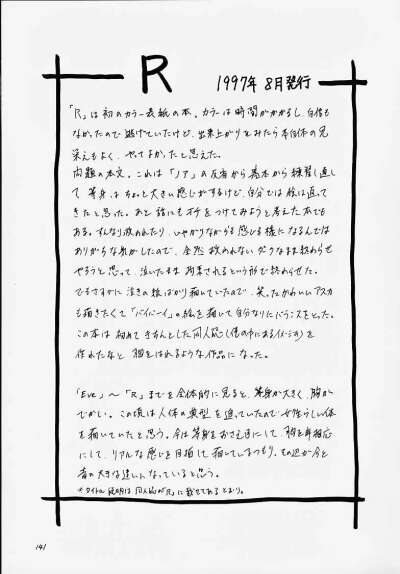 R
1997年 8月発行
「R」は初のカラー表紙の本。カラーは時間がかかるし、自信も
なかったので避けていたけど、出来上がりをみたら本自体の見
栄えもよく、やってよかったと思えた。
問題の本文。これは「ノア」の反省から基本から練習し直し
て 等身はちょっと大きい感じがするけど、自分では絵は直って
きたと思った。あと話にもオチをつけてみようと考えた本でも
ある。すんなり救われたり、いやがりながらも感じる様になるんでは
ありがちな気がしたので、全然救われないダークなまま終わらせ
やろうと思って、泣いたまま拘束されるという形で終わらせた。
でもさすがに泣きの絵ばかり描いていたので、笑ったかわいいアスカ
も描きたくて「バイバーイ」の絵を描いて自分なりにバランスをとった。
この本は初めてきちんとした同人誌(僕の中にあるイメージの)を
作れたなと 胸をはれるような作品になった。
「Eve」〜「R」までを全体的に見ると、等身が大きく、胸が
でかい。この頃は人体の典型を追っていたので女性らしい体
を描いていたと思う。今は等身をおさえぎみにして、胸も年相応
にして、リアルな感じを目指して描いてしまうもり。その辺が今と
昔の大きな違いになっていると思う。
*タイトル 説明は 同人誌が「R」に載せてあるとおり。
141